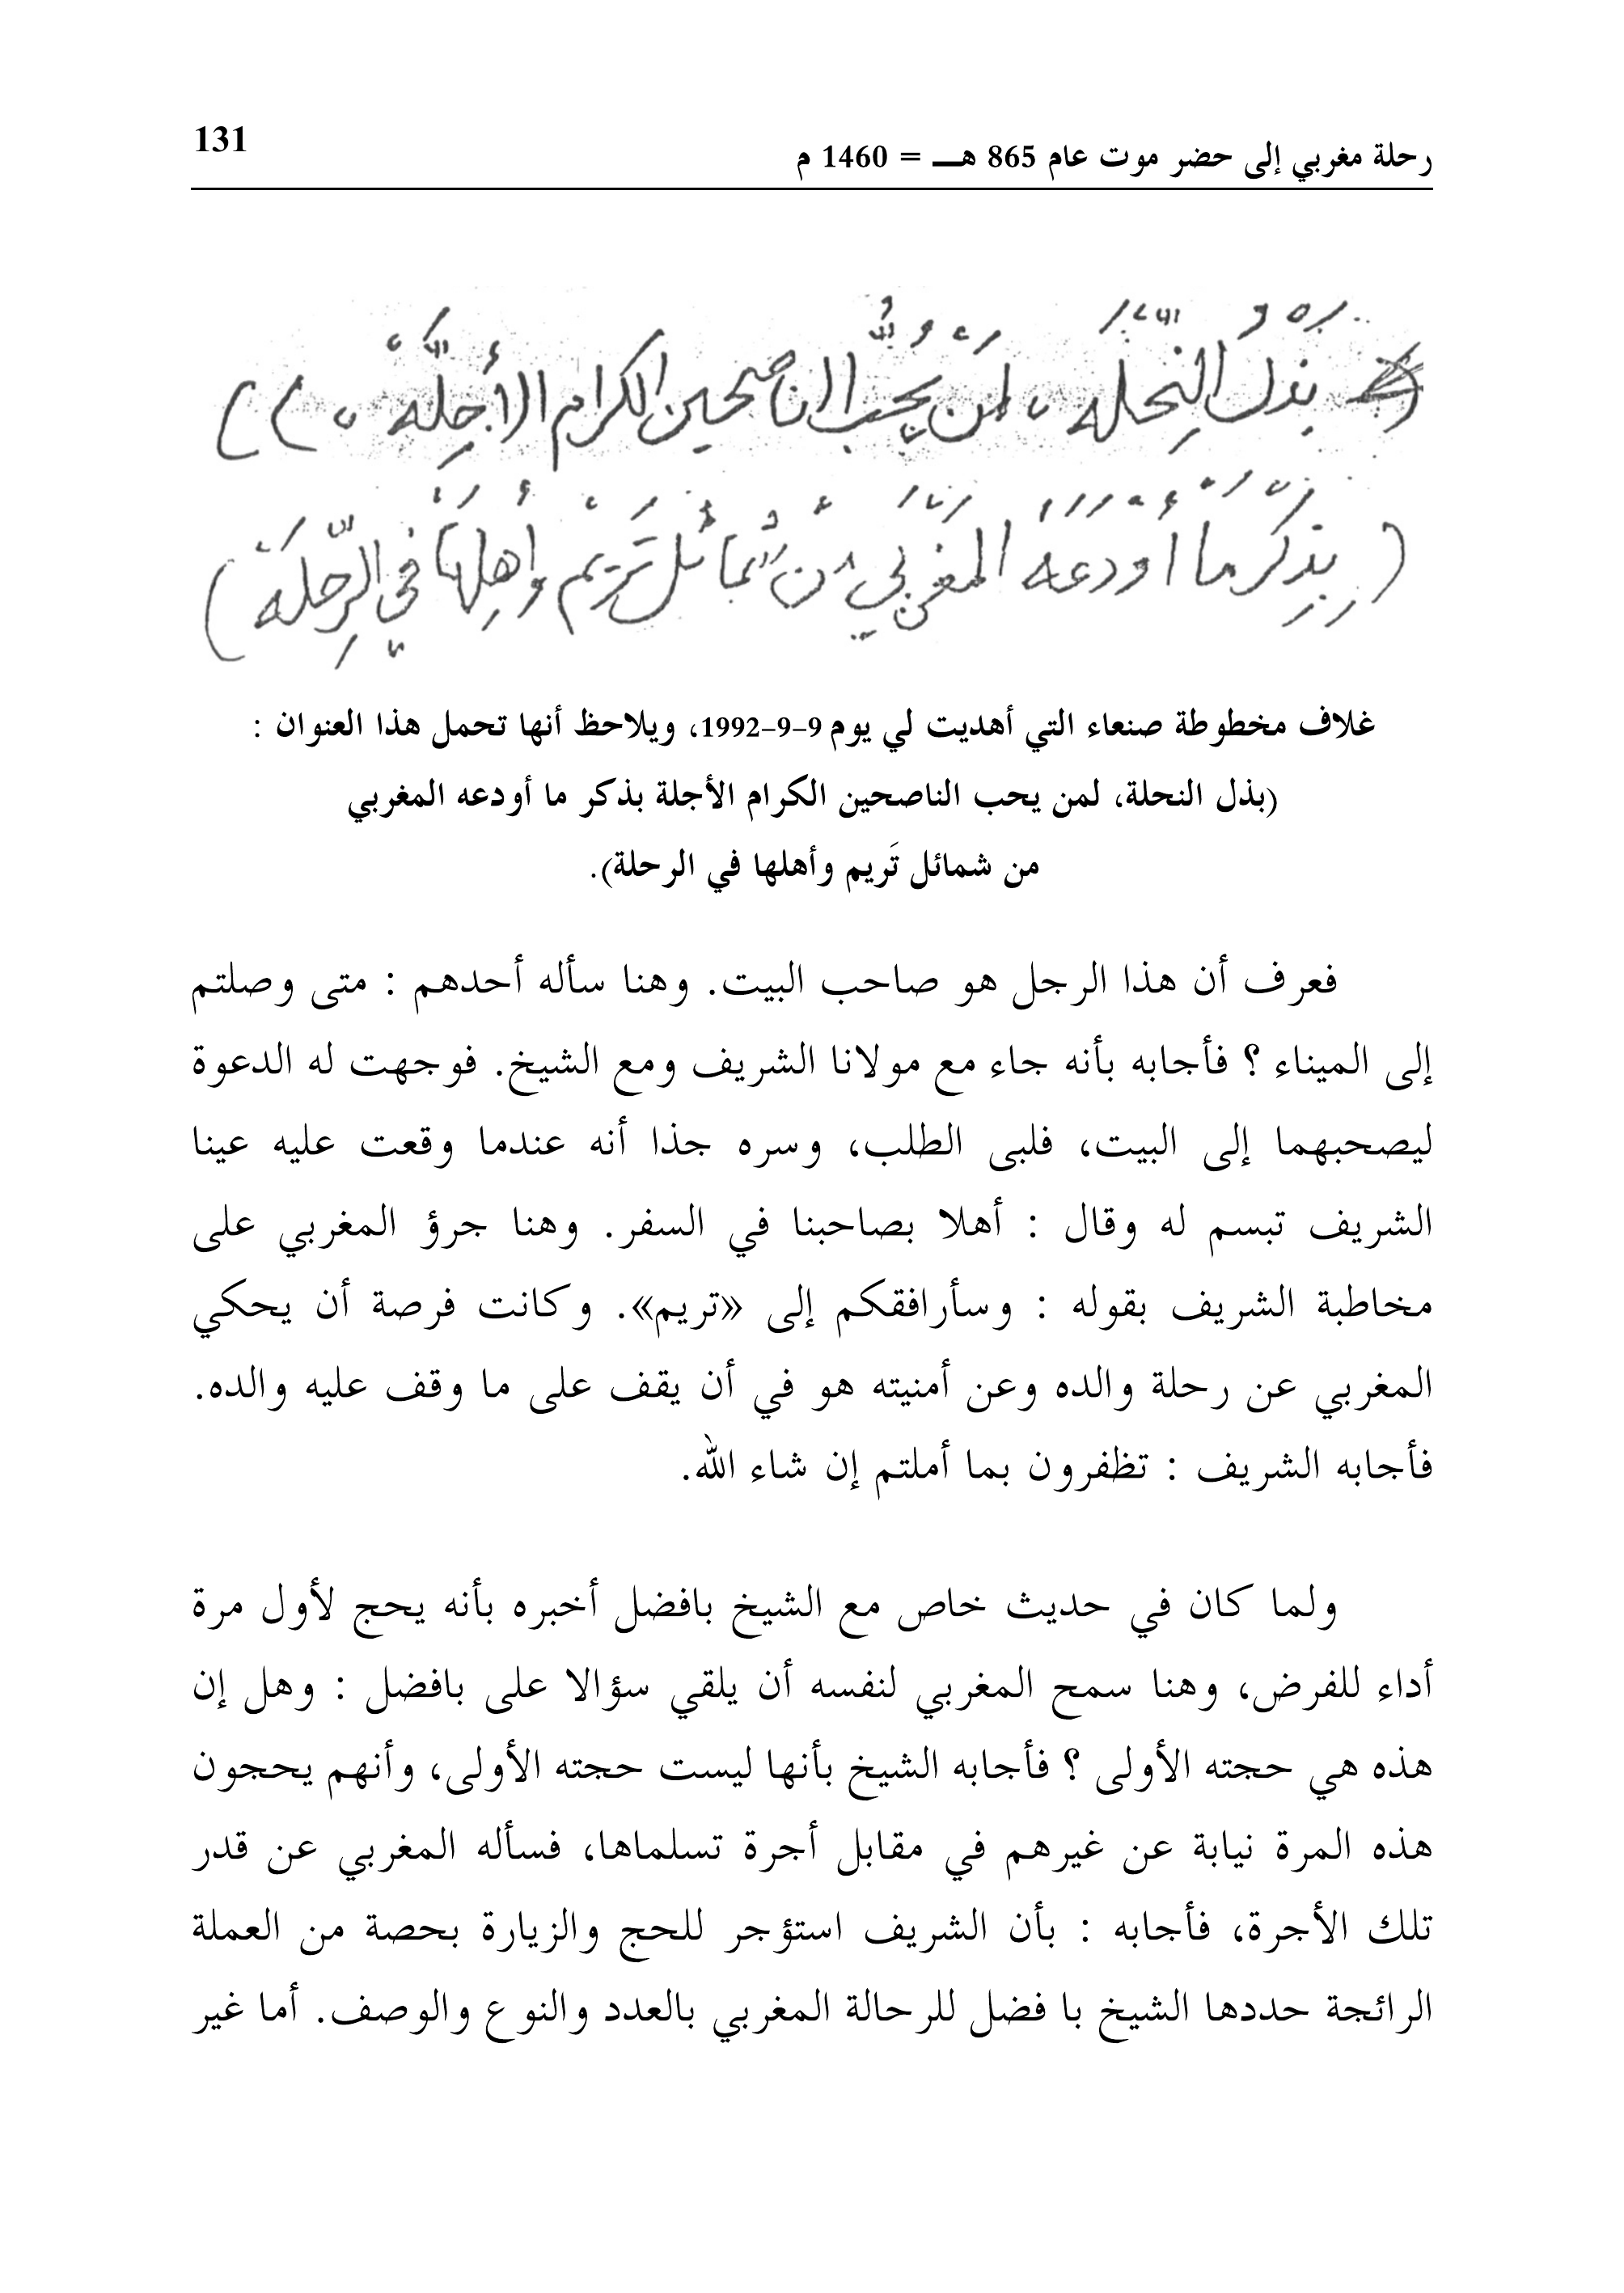 رحلة مغربي إلى حضر موت عام 865 هـ = 1460 م
131
بَذْلُ النِّحلَه ، لمَنْ يُحِبُّ الناصحين الكرام الأَجِلَّهْ ، ) )
( بِذِكْرِ ما أَودَعَهُ المَغرَبي مِن شَمائِل تَرِيْم وأَهلِها في الرِّحلَهْ )
غلاف مخطوطة صنعاء التي أهديت لي يوم 9-9-1992، ويلاحظ أنها تحمل هذا العنوان :
(بذل النحلة، لمن يحب الناصحين الكرام الأجلة بذكر ما أودعه المغربي
من شمائل تَريم وأهلها في الرحلة).
فعرف أن هذا الرجل هو صاحب البيت. وهنا سأله أحدهم : متى وصلتم
إلى الميناء ؟ فأجابه بأنه جاء مع مولانا الشريف ومع الشيخ. فوجهت له الدعوة
ليصحبهما إلى البيت، فلبى الطلب، وسره جذا أنه عندما وقعت عليه عينا
الشريف تبسم له وقال : أهلا بصاحبنا في السفر. وهنا جرؤ المغربي على
مخاطبة الشريف بقوله : وسأرافقكم إلى «تريم». وكانت فرصة أن يحكي
المغربي عن رحلة والده وعن أمنيته هو في أن يقف على ما وقف عليه والده.
فأجابه الشريف : تظفرون بما أملتم إن شاء الله.
ولما كان في حديث خاص مع الشيخ بافضل أخبره بأنه يحج لأول مرة
أداء للفرض، وهنا سمح المغربي لنفسه أن يلقي سؤالا على بافضل : وهل إن
هذه هي حجته الأولى ؟ فأجابه الشيخ بأنها ليست حجته الأولى، وأنهم يحجون
هذه المرة نيابة عن غيرهم في مقابل أجرة تسلماها، فسأله المغربي عن قدر
تلك الأجرة، فأجابه : بأن الشريف استؤجر للحج والزيارة بحصة من العملة
الرائجة حددها الشيخ با فضل للرحالة المغربي بالعدد والنوع والوصف. أما غير